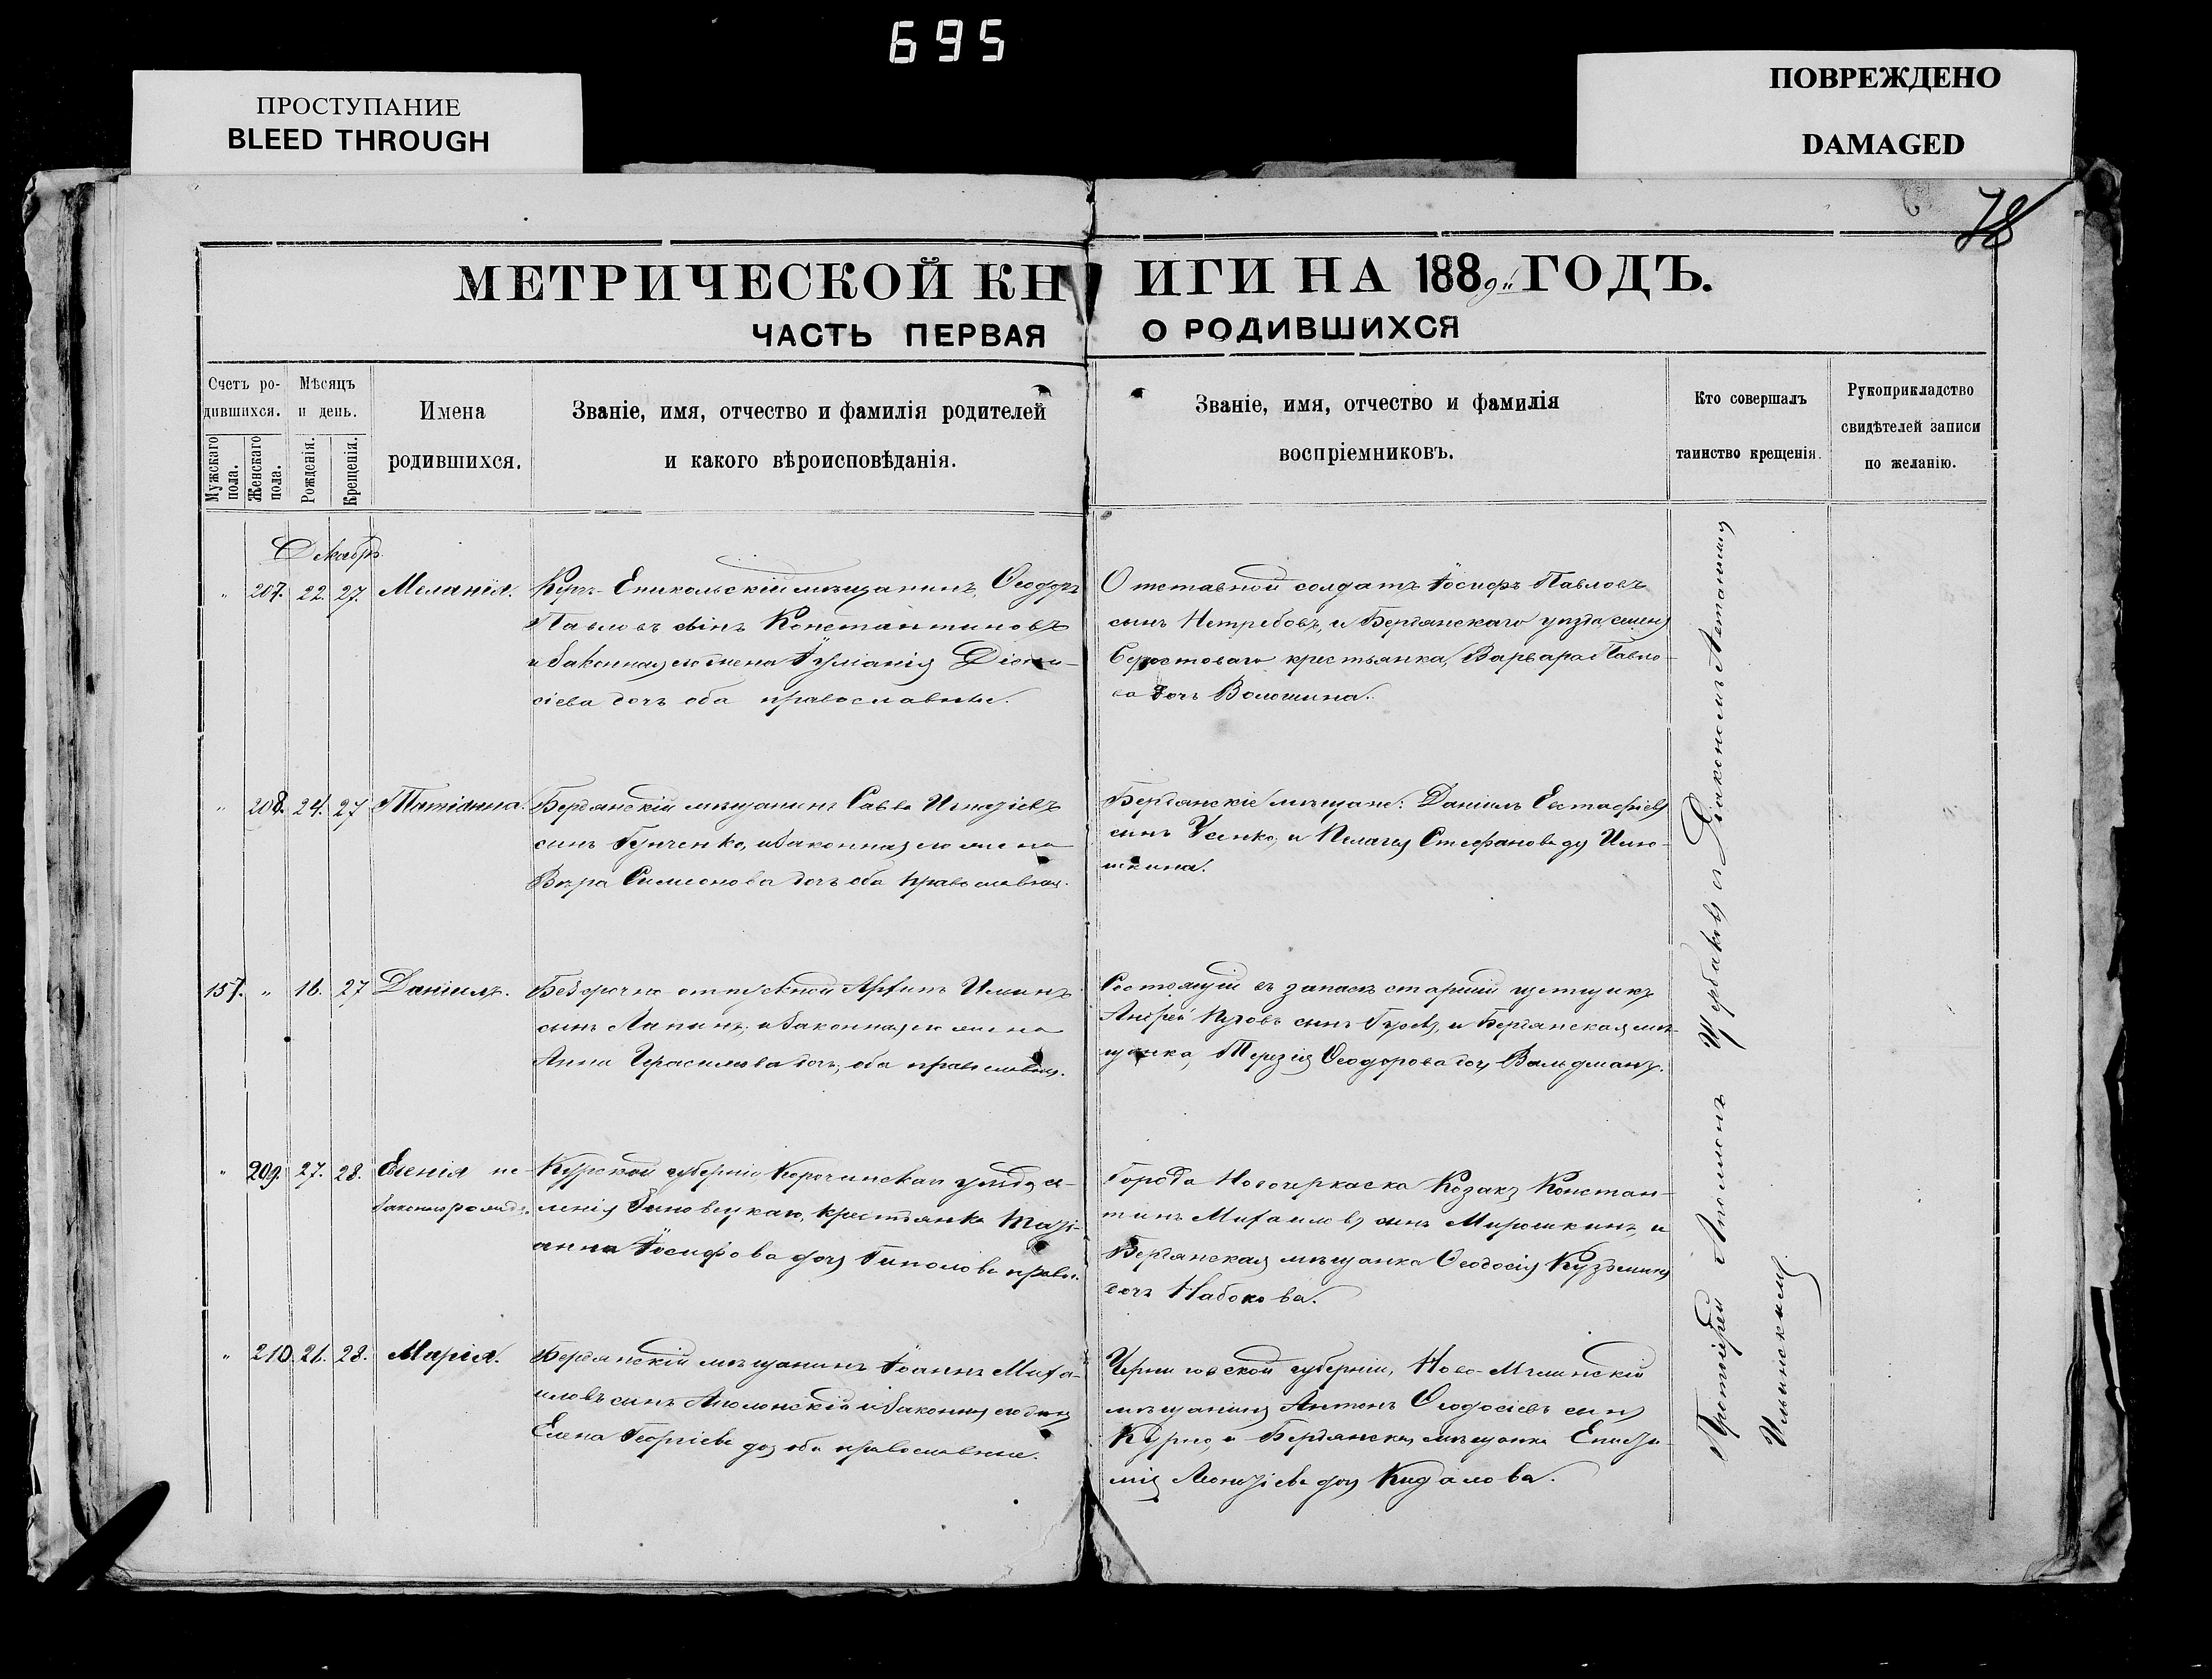 695
ПРОСТУПАНИЕ
BLEED THROUGH
ПОВРЕЖДЕНО
DAMAGED
78
МЕТРИЧЕСКОЙ КНИГИ НА 1889 ГОДЪ.
ЧАСТЬ ПЕРВАЯ О РОДИВШИХСЯ
Счетъ ро-
дившихся.
Мужскаго пола.
Женскаго пола.
Мѣсяцъ
и день.
Рожденія.
Крещенія.
Имена
родившихся.
Званіе, имя, отчество и фамилія родителей
и какого вѣроисповѣданія.
Званіе, имя, отчество и фамилія
воспріемниковъ.
Кто совершалъ
таинство крещенія.
Рукоприкладство
свидѣтелей записи
по желанію.
Декабрь
" 207. 22. 27. Меланія.
Керчь-Еникольскій мѣщанинъ, Ѳеодоръ
Павловъ сынъ Константиновъ
и законная его жена Іуліанія Діони-
сіева дочь оба православные.
Отставной солдатъ Іосифъ Павловъ
сынъ Нетребовъ, и Бердянскаго уѣзда
крестьянка, Варвара Павло-
ва дочь Волошина.
" 208. 24. 27 Татіанна.
Бердянскій мѣщанинъ Савва Игнатіевъ
сынъ и законная его жена
Вѣра Симеонова дочь оба православные.
Бердянскіе мѣщане: Даніилъ Евстафіевъ
сынъ Усенко, и Пелагея Стефанова Илю-
шкина.
157. " 16. 27 Даніилъ.
Безсрочно отпускной Архипъ Илiинъ
сынъ Лапинъ, и законная его жена
Анна Герасимова дочь, оба православные.
Состоящій въ запасѣ старшій
Андрей сынъ и Бердянская мѣ-
щанка, Терезія Ѳеодорова дочь Вальдманъ.
" 209. 27. 28. Евгенія не-
законнорожд.
Курской губерніи Корочинскаго уѣзда се-
ленія крестьянка Таті-
анна Іосифова дочь правосл.
Города Новочеркаска Козакъ Констан-
тинъ Михаиловъ сынъ Мирошкинъ, и
Бердянская мѣщанка Ѳеодосія Кузьмина
дочь Набокова.
" 210. 21. 28. Марія.
Бердянскій мѣщанинъ Іоаннъ Миха-
иловъ сынъ и законная его жена
Елена Георгіева дочь оба православные.
Черниговской губерніи, Ново-Мѣлинскій
мѣщанинъ Антонъ Ѳеодосіевъ сынъ
и Бердянская мѣщанка
Леонтіева дочь Кидалова.
Протоіерей Аполлонъ Щербаковъ съ Діакономъ
Илинскимъ